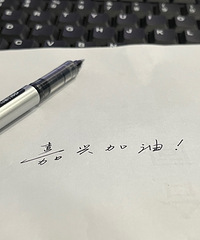 嘉兴加油！